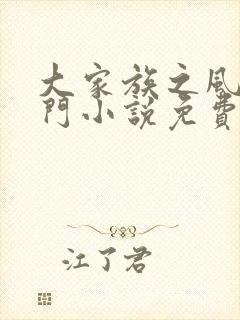 大家族之風
門小説免費
江了君